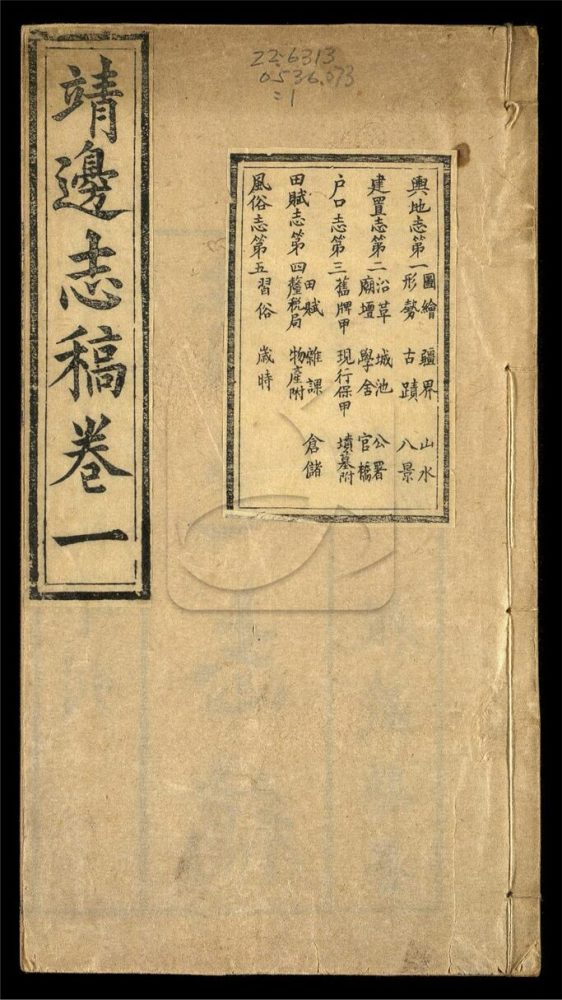 靖邊志稿卷一
22.6313
0536.073
=1
輿地志第一 圖繪 疆界 山水
形勢 古蹟 八景
建置志第二 沿革 城池 公署
廟壇 學舍 官橋
户口志第三 舊牌甲 現行保甲 墳墓附
田賦志第四 田賦 雜課 倉儲
釐稅局 物產附
風俗志第五 習俗 歲時